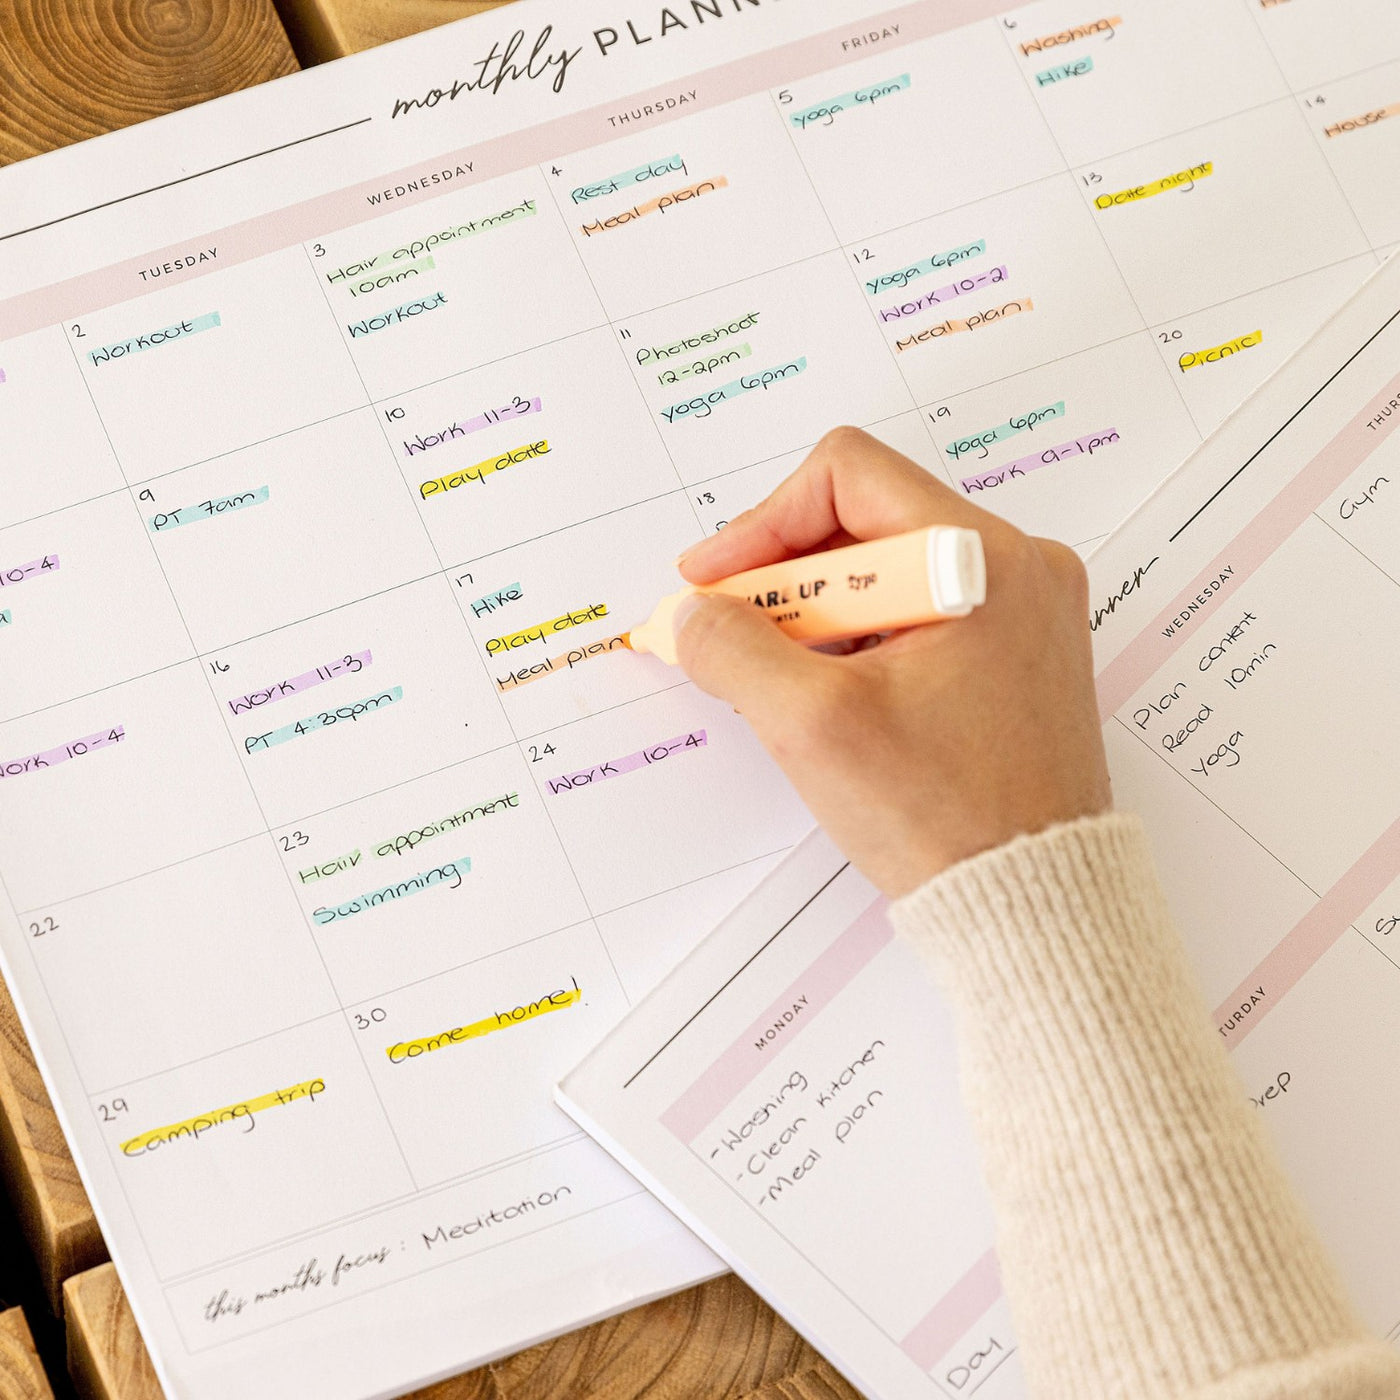 monthly
TUESDAY
WEDNESDAY
THURSDAY
FRIDAY
2
Workout
3
Hair appointment
10am
Workout
4
Rest day
Meal plan
5
yoga 6pm
6
Washing
Hike
9
PT 7am
10
Work 11-3
Play date
11
Photoshoot
12-2pm
yoga 6pm
12
yoga 6pm
Work 10-2
Meal plan
13
Date night
14
House
10-4
16
Work 11-3
PT 4:30pm
17
Hike
Play date
Meal plan
18
19
yoga 6pm
Work 9-1pm
20
Picnic
Work 10-4
22
23
Hair appointment
Swimming
24
Work 10-4
29
Camping trip
30
Come home!
this months focus: Meditation
WEDNESDAY
Plan content
Read 10min
yoga
Gym
MONDAY
-Washing
-Clean kitchen
-Meal plan
Day
UP